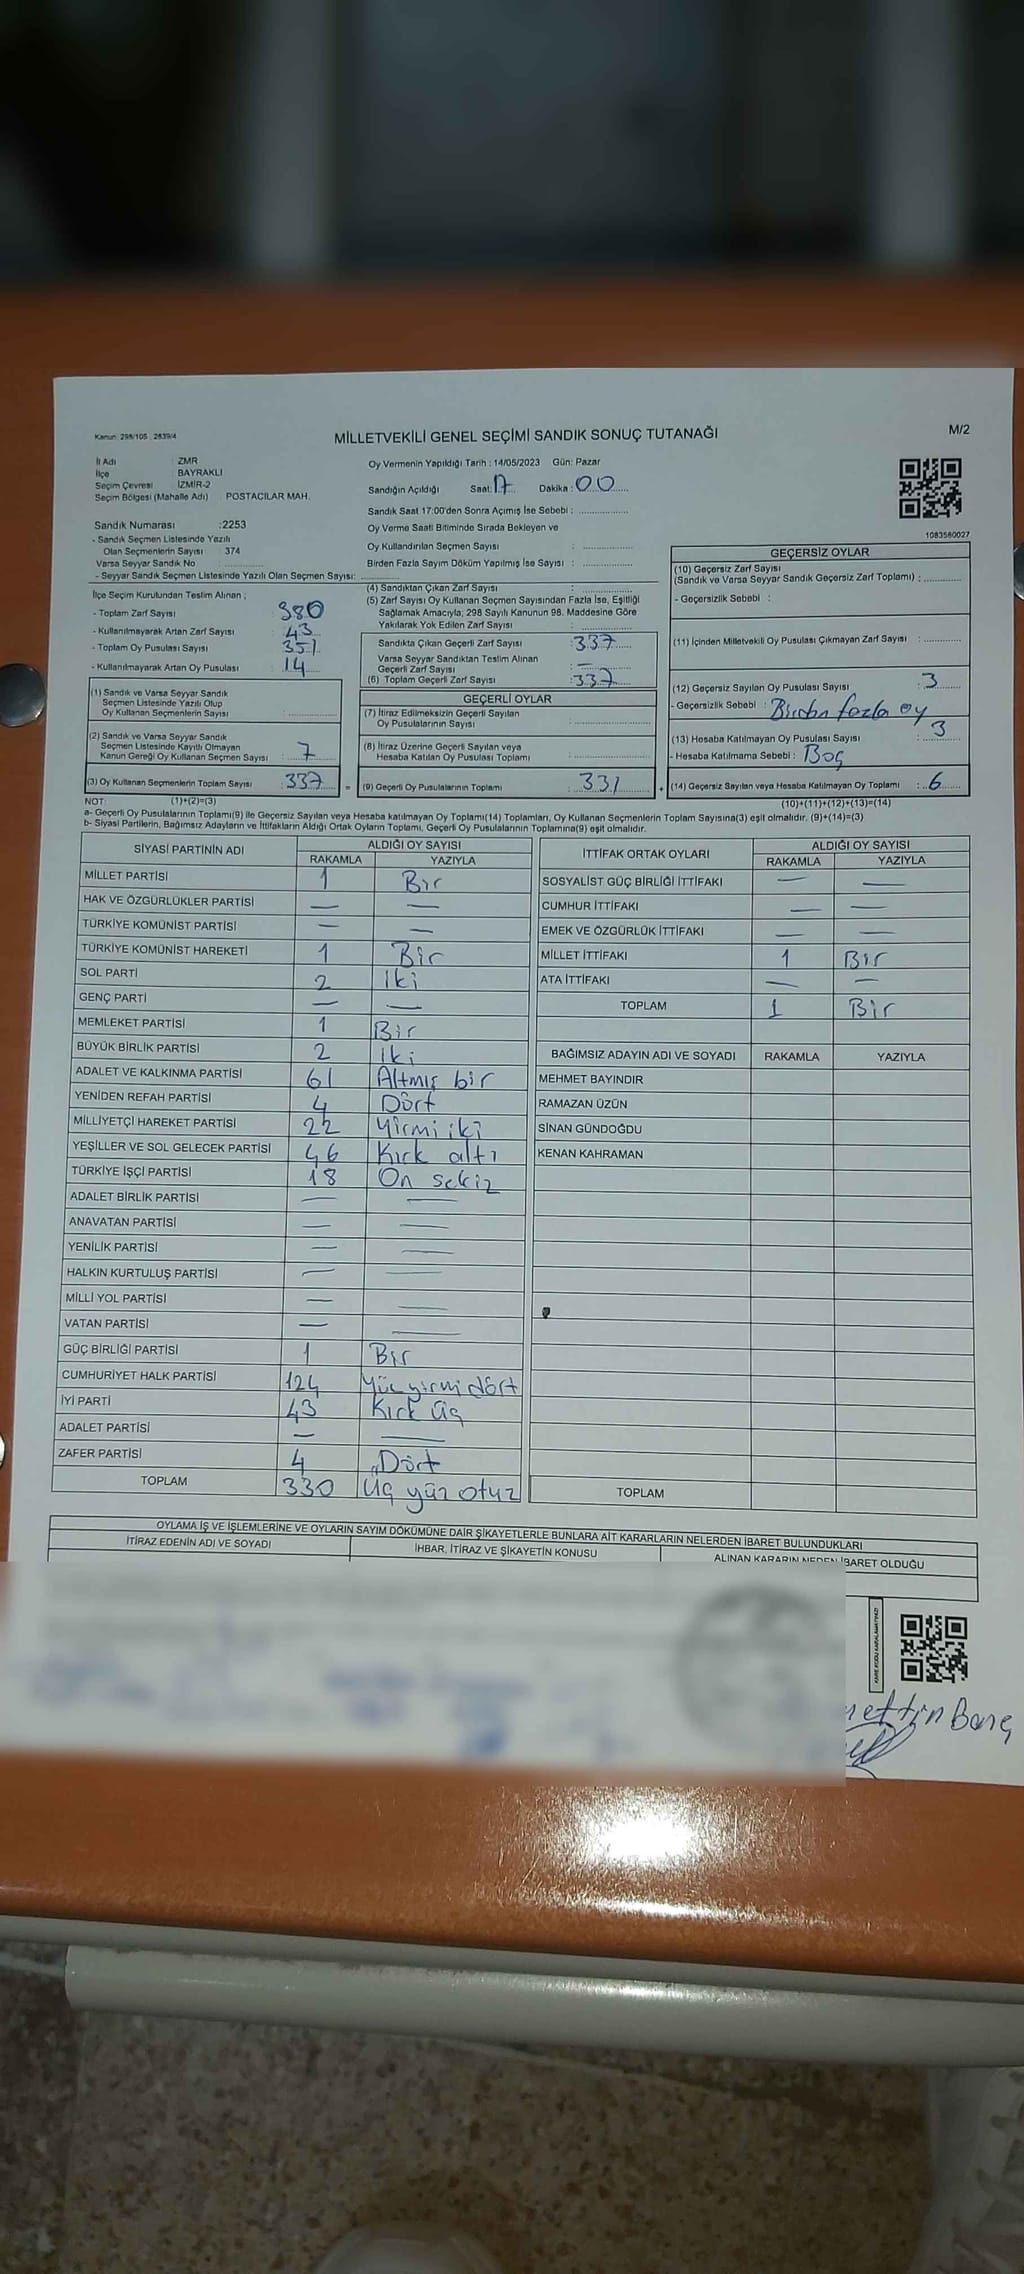 Kanun: 298/105 , 2839/4
MİLLETVEKİLİ GENEL SEÇİMİ SANDIK SONUÇ TUTANAĞI
M/2
İl Adı : ZMR
İlçe BAYRAKLI
Seçim Çevresi İZMİR-2
Seçim Bölgesi (Mahalle Adı) POSTACILAR MAH.
Oy Vermenin Yapıldığı Tarih : 14/05/2023 Gün: Pazar
Sandığın Açıldığı Saat: 17 Dakika : 00
Sandık Saat 17:00'den Sonra Açımış İse Sebebi :
Oy Verme Saati Bitiminde Sırada Bekleyen ve
Oy Kullandırılan Seçmen Sayısı :
Birden Fazla Sayım Döküm Yapılmış İse Sayısı :
1083580027
Sandık Numarası :2253
- Sandık Seçmen Listesinde Yazılı
Olan Seçmenlerin Sayısı : 374
Varsa Seyyar Sandık No :
- Seyyar Sandık Seçmen Listesinde Yazılı Olan Seçmen Sayısı:
İlçe Seçim Kurulundan Teslim Alınan ;
- Toplam Zarf Sayısı 380
- Kullanılmayarak Artan Zarf Sayısı 43
- Toplam Oy Pusulası Sayısı 351
- Kullanılmayarak Artan Oy Pusulası 14
(1) Sandık ve Varsa Seyyar Sandık
Seçmen Listesinde Yazılı Olup
Oy Kullanan Seçmenlerin Sayısı :
(2) Sandık ve Varsa Seyyar Sandık
Seçmen Listesinde Kayıtlı Olmayan
Kanun Gereği Oy Kullanan Seçmen Sayısı : 7
(3) Oy Kullanan Seçmenlerin Toplam Sayısı : 337 =
(4) Sandıktan Çıkan Zarf Sayısı :
(5) Zarf Sayısı Oy Kullanan Seçmen Sayısından Fazla İse, Eşitliği
Sağlamak Amacıyla, 298 Sayılı Kanunun 98. Maddesine Göre
Yakılarak Yok Edilen Zarf Sayısı :
Sandıkta Çıkan Geçerli Zarf Sayısı : 337
Varsa Seyyar Sandıktan Teslim Alınan
Geçerli Zarf Sayısı : —
(6) Toplam Geçerli Zarf Sayısı : 337
GEÇERLİ OYLAR
(7) İtiraz Edilmeksizin Geçerli Sayılan
Oy Pusulalarının Sayısı :
(8) İtiraz Üzerine Geçerli Sayılan veya
Hesaba Katılan Oy Pusulası Toplamı :
(9) Geçerli Oy Pusulalarının Toplamı : 331 +
GEÇERSİZ OYLAR
(10) Geçersiz Zarf Sayısı
(Sandık ve Varsa Seyyar Sandık Geçersiz Zarf Toplamı) :
- Geçersizlik Sebebi :
(11) İçinden Milletvekili Oy Pusulası Çıkmayan Zarf Sayısı :
(12) Geçersiz Sayılan Oy Pusulası Sayısı : 3
- Geçersizlik Sebebi : Birden fazla oy
(13) Hesaba Katılmayan Oy Pusulası Sayısı : 3
- Hesaba Katılmama Sebebi : Boş
(14) Geçersiz Sayılan veya Hesaba Katılmayan Oy Toplamı : 6
NOT: (1)+(2)=(3)
(10)+(11)+(12)+(13)=(14)
a- Geçerli Oy Pusulalarının Toplamı(9) ile Geçersiz Sayılan veya Hesaba Katılmayan Oy Toplamı(14) Toplamları, Oy Kullanan Seçmenlerin Toplam Sayısına(3) eşit olmalıdır. (9)+(14)=(3)
b- Siyasi Partilerin, Bağımsız Adayların ve İttifakların Aldığı Ortak Oyların Toplamı, Geçerli Oy Pusulalarının Toplamına(9) eşit olmalıdır.
SİYASİ PARTİNİN ADI ALDIĞI OY SAYISI
RAKAMLA YAZIYLA
MİLLET PARTİSİ 1 Bir
HAK VE ÖZGÜRLÜKLER PARTİSİ — —
TÜRKİYE KOMÜNİST PARTİSİ — —
TÜRKİYE KOMÜNİST HAREKETİ 1 Bir
SOL PARTİ 2 iki
GENÇ PARTİ — —
MEMLEKET PARTİSİ 1 Bir
BÜYÜK BİRLİK PARTİSİ 2 iki
ADALET VE KALKINMA PARTİSİ 61 Altmış bir
YENİDEN REFAH PARTİSİ 4 Dört
MİLLİYETÇİ HAREKET PARTİSİ 22 Yirmi iki
YEŞİLLER VE SOL GELECEK PARTİSİ 46 Kırk altı
TÜRKİYE İŞÇİ PARTİSİ 18 On sekiz
ADALET BİRLİK PARTİSİ — —
ANAVATAN PARTİSİ — —
YENİLİK PARTİSİ — —
HALKIN KURTULUŞ PARTİSİ — —
MİLLİ YOL PARTİSİ — —
VATAN PARTİSİ — —
GÜÇ BİRLİĞİ PARTİSİ 1 Bir
CUMHURİYET HALK PARTİSİ 124 Yüz yirmi dört
İYİ PARTİ 43 Kırk üç
ADALET PARTİSİ — —
ZAFER PARTİSİ 4 Dört
TOPLAM 330 Üç yüz otuz
İTTİFAK ORTAK OYLARI ALDIĞI OY SAYISI
RAKAMLA YAZIYLA
SOSYALİST GÜÇ BİRLİĞİ İTTİFAKI — —
CUMHUR İTTİFAKI — —
EMEK VE ÖZGÜRLÜK İTTİFAKI — —
MİLLET İTTİFAKI 1 Bir
ATA İTTİFAKI — —
TOPLAM 1 Bir
BAĞIMSIZ ADAYIN ADI VE SOYADI RAKAMLA YAZIYLA
MEHMET BAYINDIR
RAMAZAN ÜZÜN
SİNAN GÜNDOĞDU
KENAN KAHRAMAN
TOPLAM
OYLAMA İŞ VE İŞLEMLERİNE VE OYLARIN SAYIM DÖKÜMÜNE DAİR ŞİKAYETLERLE BUNLARA AİT KARARLARIN NELERDEN İBARET BULUNDUKLARI
İTİRAZ EDENİN ADI VE SOYADI İHBAR, İTİRAZ VE ŞİKAYETİN KONUSU ALINAN KARARIN NEDEN İBARET OLDUĞU